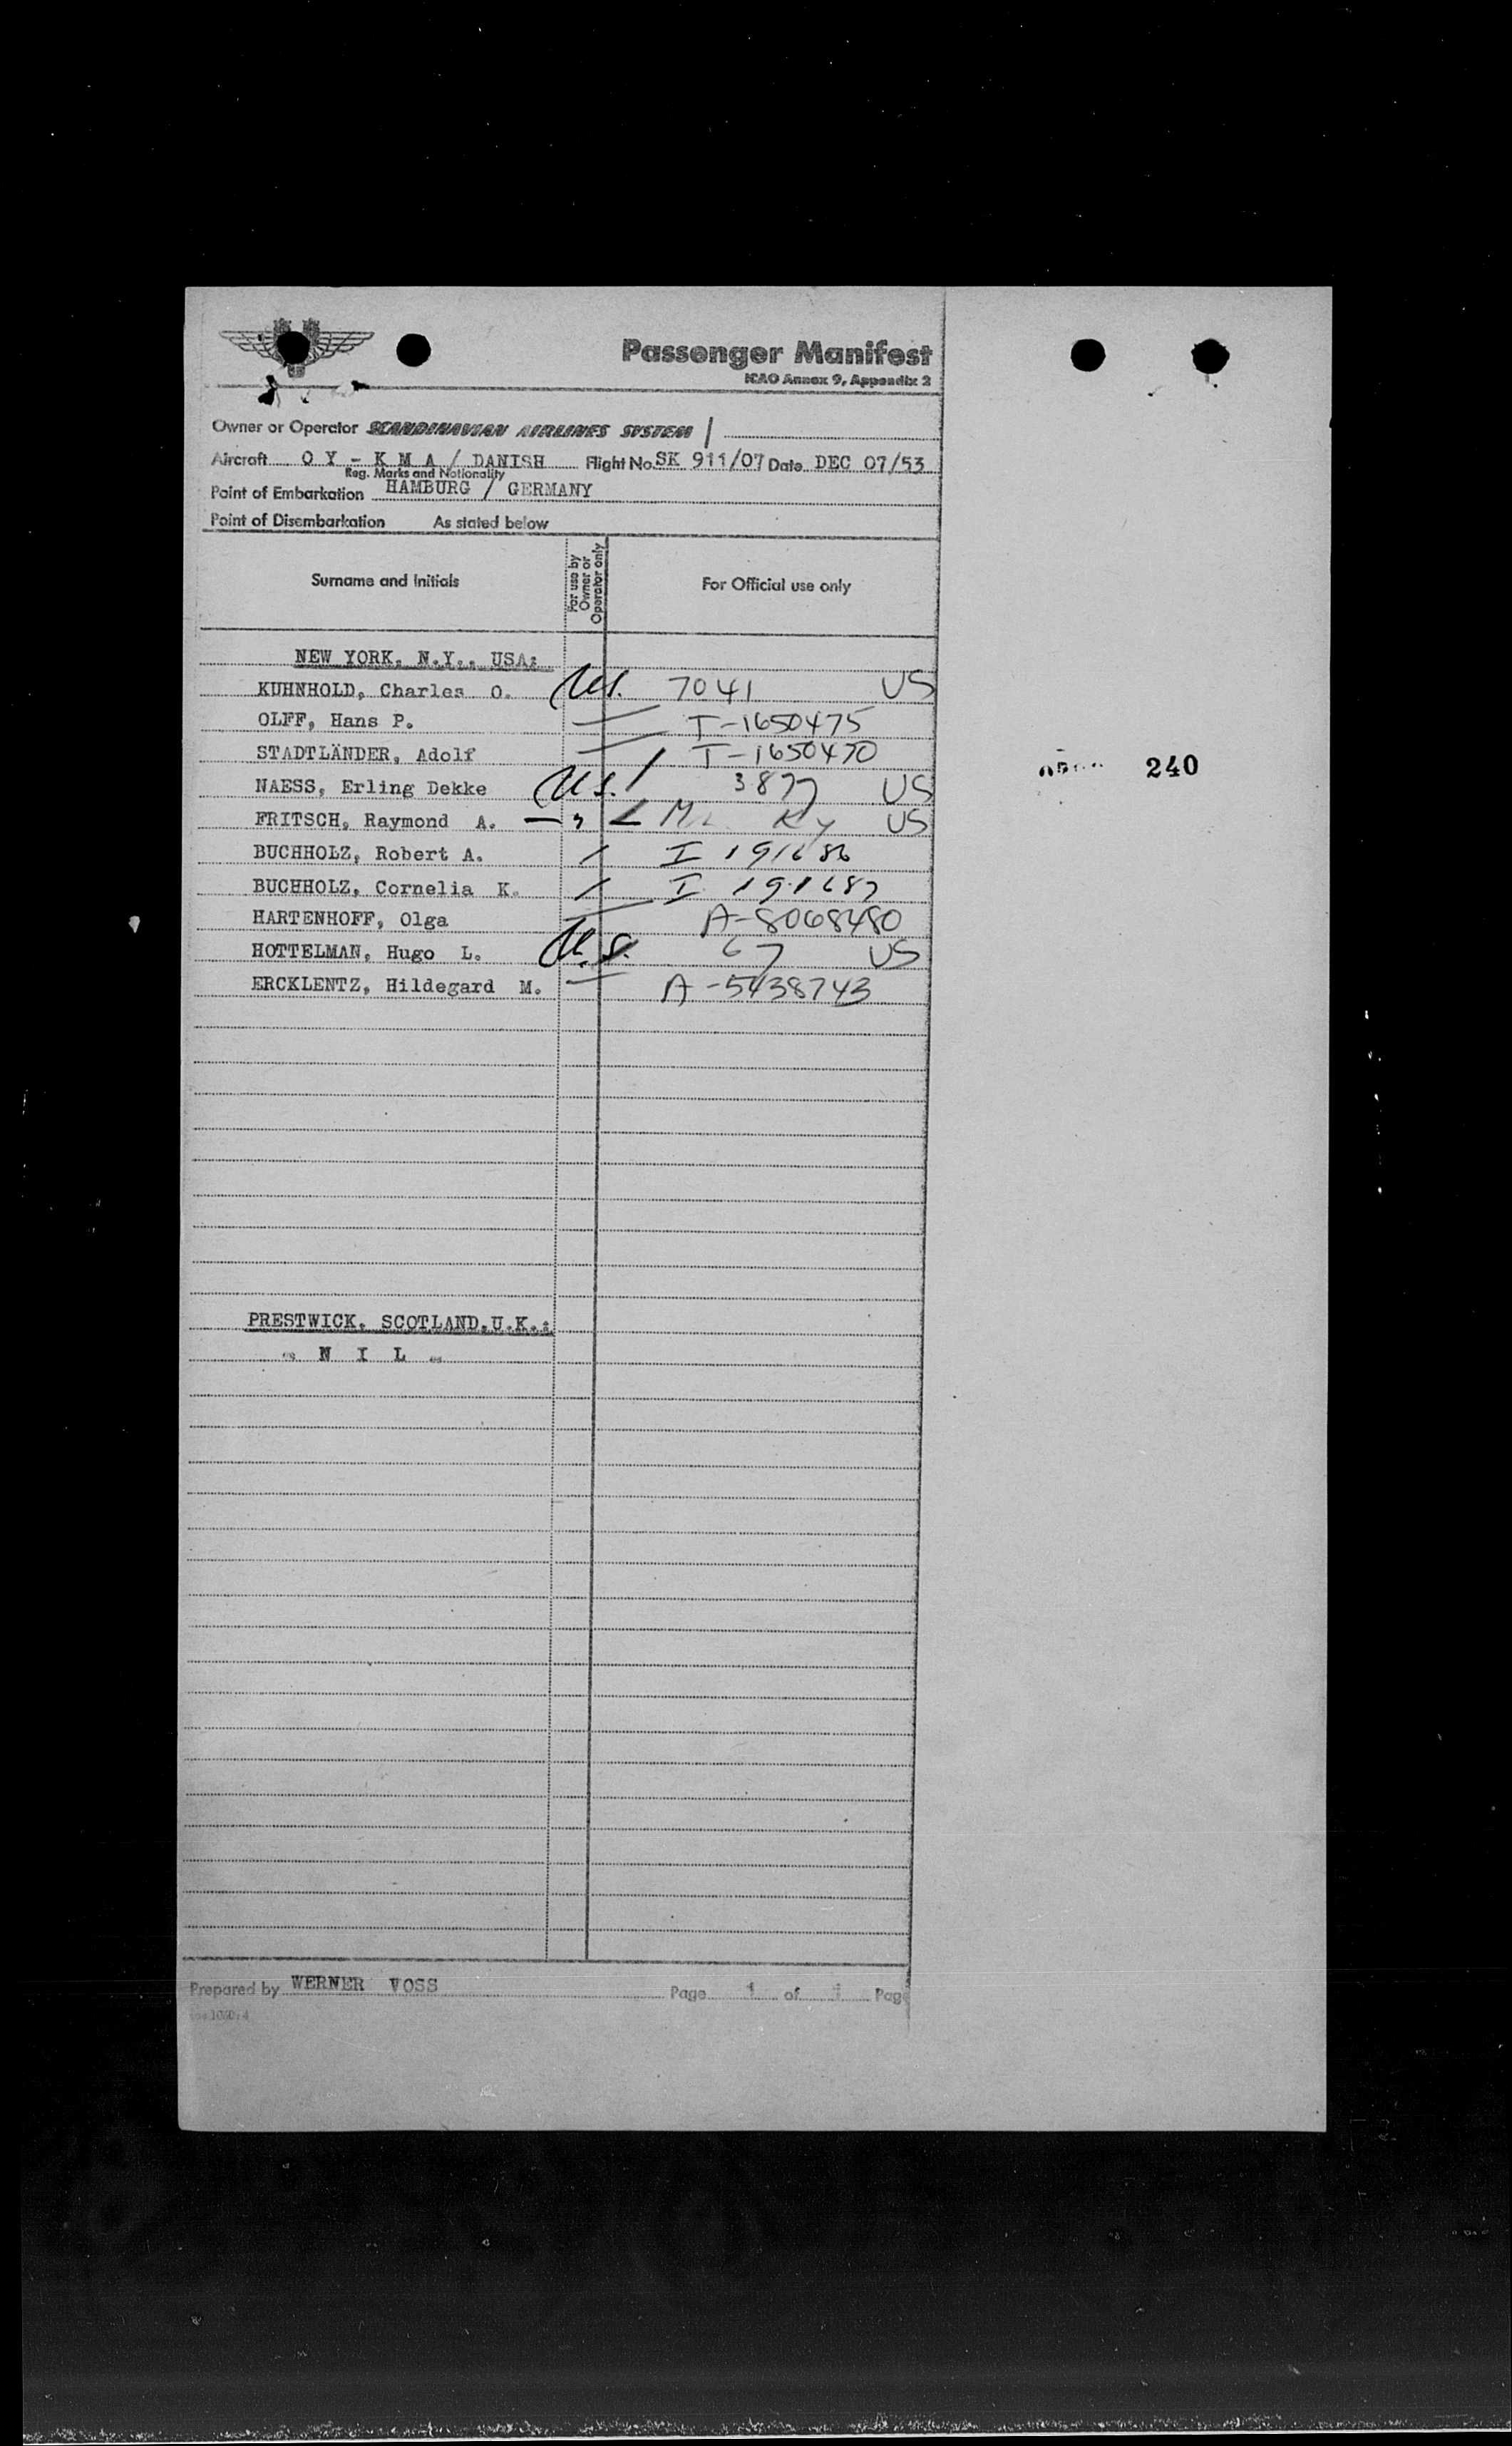 Passenger Manifest
ICAO Annex 9, Appendix 2
Owner or Operator SCANDINAVIAN AIRLINES SYSTEM
Aircraft O Y - K M A / DANISH Flight No. SK 911/07 Date DEC 07/53
Reg. Marks and Nationality
Point of Embarkation HAMBURG / GERMANY
Point of Disembarkation As stated below
Surname and Initials
For use by Owner or Operator only
For Official use only
NEW YORK, N.Y., USA:
KUHNHOLD, Charles O. U.S. 7041 US
OLFF, Hans P. T-1650475
STADTLÄNDER, Adolf T-1650470
NAESS, Erling Dekke U.S. 3877 US
FRITSCH, Raymond A. US
BUCHHOLZ, Robert A. I 191686
BUCHHOLZ, Cornelia K. I 191687
HARTENHOFF, Olga A-8068480
HOTTELMAN, Hugo L. U.S. 67 US
ERCKLENTZ, Hildegard M. A-5438743
240
PRESTWICK, SCOTLAND,U.K.:
- N I L -
Prepared by WERNER VOSS Page 1 of 1 Page